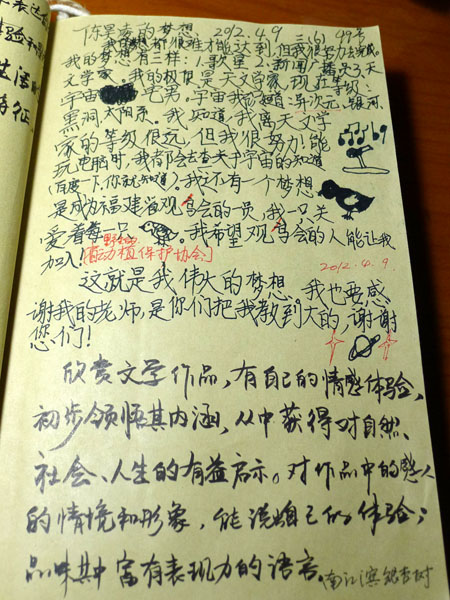 陈昊嘉的梦想 2012.4.9 三(6) 49号
我的梦想都很难才能达到,但我很努力去完成。
我的梦想有三样:1.歌星 2.新闻广播 3.天
文学家。我的极想是天文学家,现在等级:
宇宙 宅男。宇宙我了知道:异次元、银河、
黑洞、太阳系。我知道,我离天文学
家的等级很远,但我很努力!能
玩电脑时,我都会去查关于宇宙的知道
(百度一下,你就知道)。我还有一个梦想
是成为福建省观鸟会的一员,我一只关
爱着每一只 。我希望观鸟会的人能让我
加入!
野生动植保护协会
2012.4.9.
这就是我伟大的梦想。我也要感
谢我的老师,是你们把我教到大的,谢谢
您们!
欣赏文学作品,有自己的情感体验,
初步领悟其内涵,从中获得对自然、
社会、人生的有益启示。对作品中的感人
的情境和形象,能说出自己的体验;
品味其中富有表现力的语言。
南江滨银杏树
表达
体验和
生活的
特征